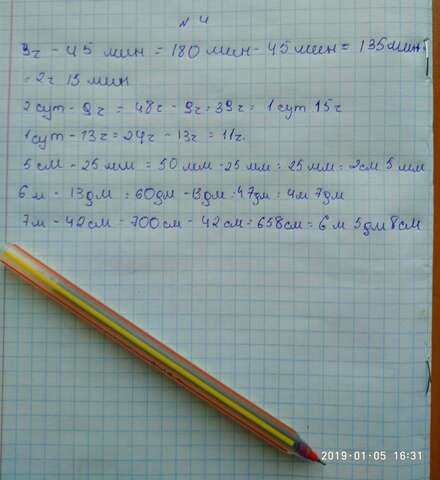 № 4
3ч - 45 мин = 180 мин - 45 мин = 135 мин
= 2ч 15 мин
2 сут - 9ч = 48ч - 9ч = 39ч = 1 сут 15ч
1 сут - 13ч = 24ч - 13ч = 11ч.
5 см - 25 мм = 50 мм - 25 мм = 25 мм = 2 см 5 мм
6 м - 13 дм = 60 дм - 13 дм = 47 дм = 4 м 7 дм
7 м - 42 см - 700 см - 42 см = 658 см = 6 м 5 дм 8 см
2019-01-05 16:31